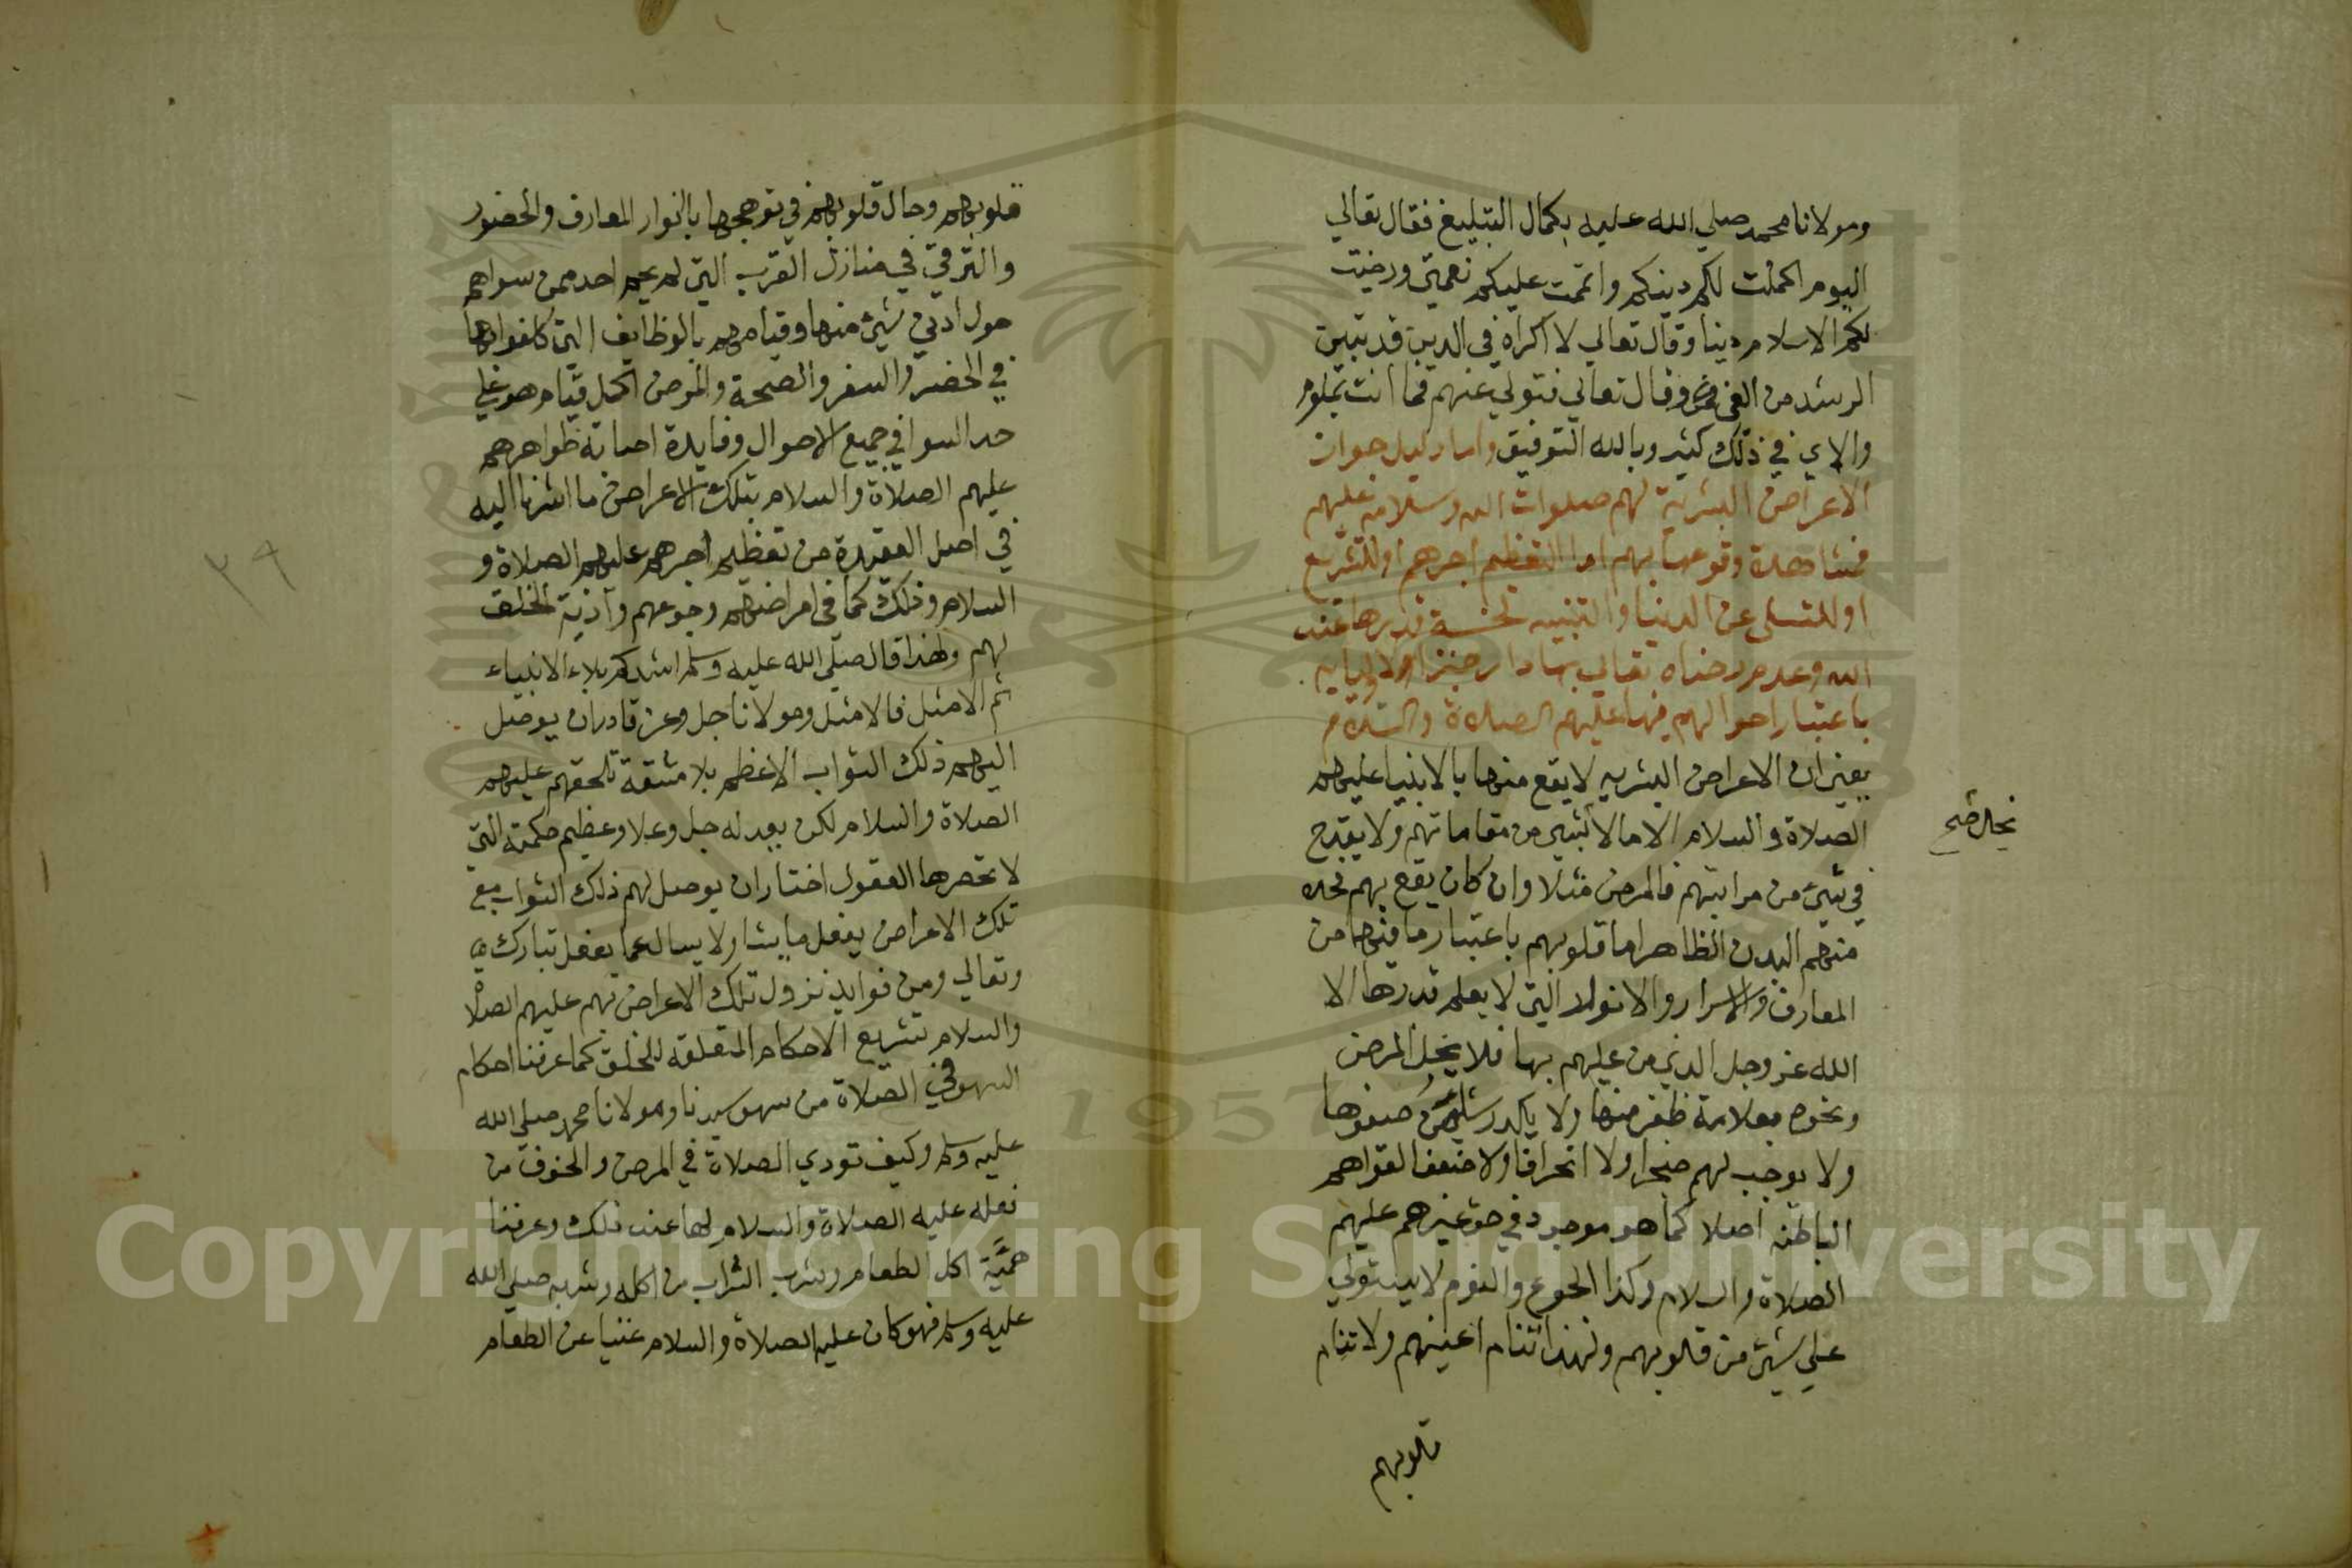 ومولانا محمد صلي الله عليه بكمال التبليغ فقال تعالي
اليوم اكملت لكم دينكم واتممت عليكم نعمتي ورضيت
لكم الاسلام دينا وقال تعالي لا اكراه في الدين قد تبين
الرشد من الغي وقال تعالي فتولي عنهم فما انت بملوم
والاي في ذلك كثير وبالله التوفيق واما دليل جواز
الاعراض البشرية لهم صلوات الله وسلامه عليهم
فمشاهدة وقوعها بهم اما لتعظيم اجرهم او للتشريع
او للتسلي عن الدنيا والتنبيه لخسة قدرها عند
الله وعدم رضاه تعالي بها دار جزا لاوليايه
باعتبار احوالهم فيها عليهم الصلاة والسلام
يعني ان الاعراض البشريه لا يقع منها بالانبيا عليهم
الصلاة والسلام الا ما لا من مقاماتهم ولا يقدح
في شيء من مراتبهم فالمرض مثلا وان كان يقع بهم فحله
منهم البدن الظاهر اما قلوبهم باعتبار ما فيها من
المعارف والاسرار والانوار التي لا يعلم قدرها الا
الله عز وجل الذي من عليهم بها فلا يخل المرض
ونحوه بقلامة ظفر منها ولا يكدر شيا من صفوها
ولا يوجب لهم ضجرا ولا انحرافا ولا ضعفا لقواهم
الباطنة اصلا كما هو موجود في حق غيرهم عليهم
الصلاة والسلام وكذا الجوع والنوم لا يستولي
علي شيء من قلوبهم ولهذا تنام اعينهم ولا تنام
قلوبهم
قلوبهم وحال قلوبهم في توهجها بانوار المعارف والحضور
والترقي في منازل القرب التي لم يحم احد ممن سواهم
حول ادني شيء منها وقيامهم بالوظايف التي كلفوا بها
في الحضر والسفر والصحة والمرض اكمل قيام هو علي
حد السوا في جميع الاحوال وفايدة اصابة ظواهرهم
عليهم الصلاة والسلام بتلك الاعراض ما اشرنا اليه
في اصل العقيدة من تعظيم اجرهم عليهم الصلاة و
السلام وذلك كما في امراضهم وجوعهم واذية الخلق
لهم ولهذا قال صلي الله عليه وسلم اشدكم بلاء الانبياء
ثم الامثل فالامثل ومولانا جل وعز قادر ان يوصل
اليهم ذلك الثواب الاعظم بلا مشقة تلحقهم عليهم
الصلاة والسلام لكن بعدله جل وعلا وعظيم حكمته التي
لا تحصرها العقول اختار ان يوصل لهم ذلك الثواب مع
تلك الاعراض يفعل ما يشا ولا يسال عما يفعل تبارك
وتعالي ومن فوايد نزول تلك الاعراض بهم عليهم الصلا
والسلام تشريع الاحكام المتعلقة للخلق كما عرفنا احكام
السهو في الصلاة من سهو سيدنا ومولانا محمد صلي الله
عليه وسلم وكيف تودي الصلاة في المرض والخوف من
فعله عليه الصلاة والسلام لها عند ذلك وعرفنا
اكل الطعام وشرب الشراب من اكله وشربه صلي الله
عليه وسلم فهو كان عليه الصلاة والسلام غنيا عن الطعام
٢٩
Copyright © King Saud University
1957